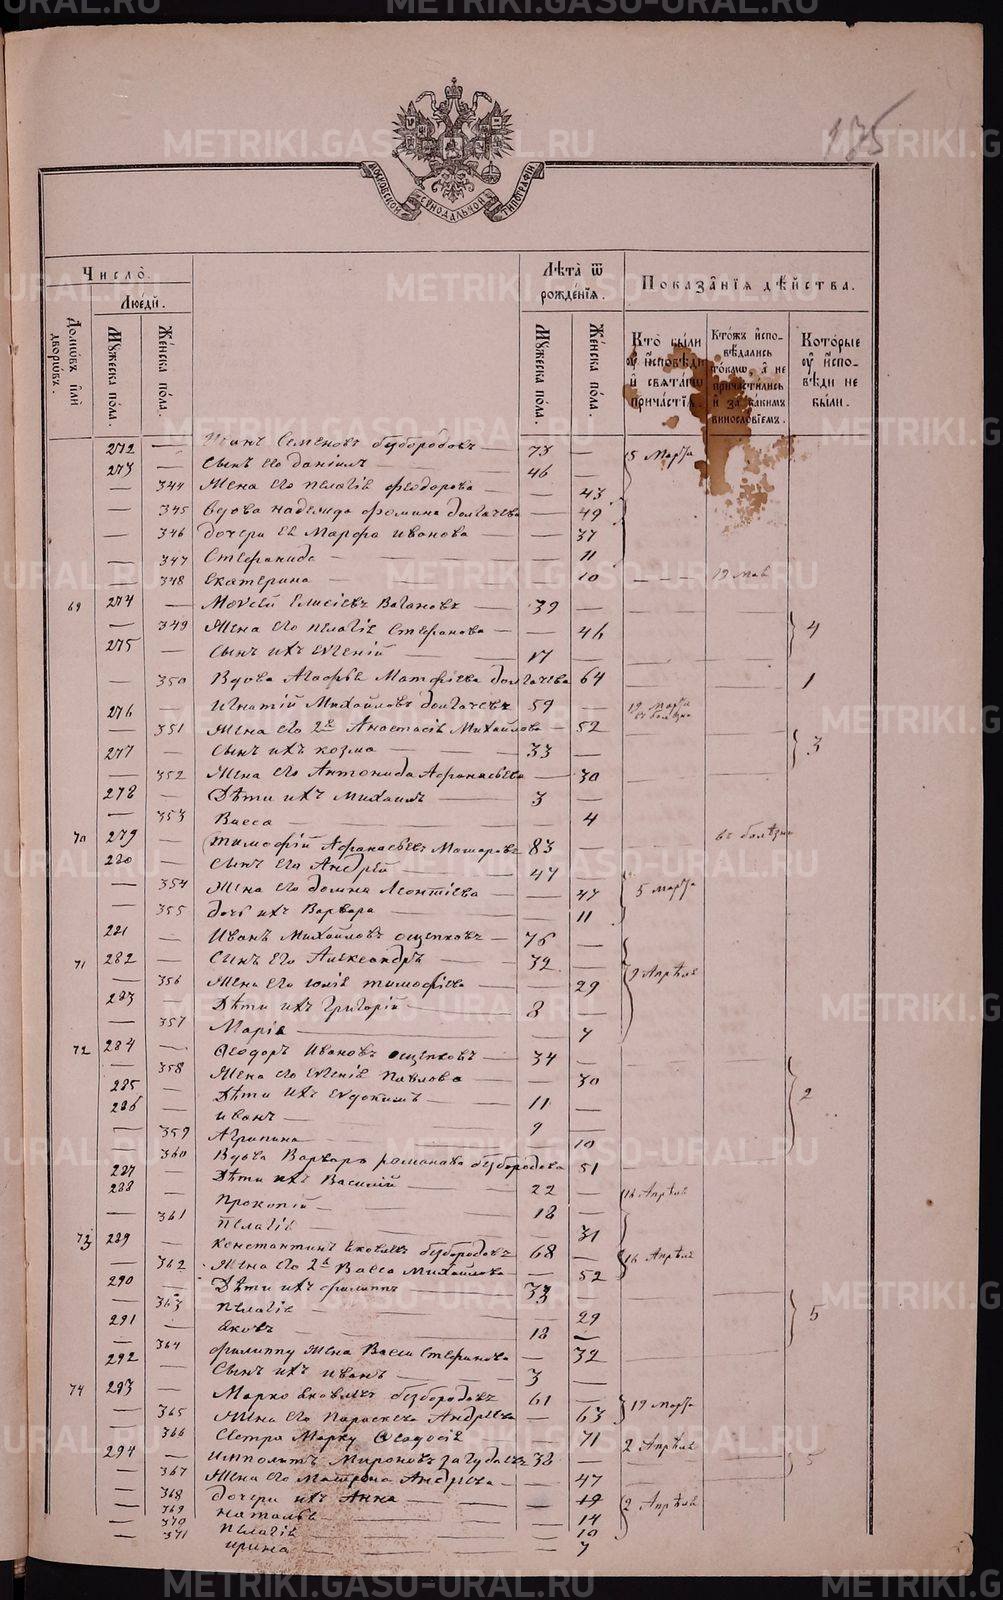 175
МОСКОВСКОЙ СѴНОДАЛЬНОЙ ТИПОГРАФІИ
Число̀.
Люде́й.
Домѡ́въ и҆лѝ дворѡ́въ.
Мꙋ́жеска по́ла.
Же́нска по́ла.
Лѣ́та ѿ рожде́нїѧ.
Мꙋ́жеска по́ла.
Же́нска по́ла.
Показа̑нїѧ дѣ́йства.
Кто̀ бы́ли ᲂу҆ и҆сповѣ́ди и҆ свѧта́гѡ прича́стїѧ.
Кто́жъ и҆сповѣ́дались то́кмѡ, а҆ не причасти́лись и҆ за каки́мъ виносло́вїемъ.
Кото́рые ᲂу҆ и҆сповѣ́ди не бы́ли.
272 — Семеновъ Безбородовъ — 73 — 5 Марта
273 — Сынъ его Даніилъ — 46 —
— 344 Жена его Пелагія Феодорова — — 43
— 345 Вдова Надежда Фомина Долгачева — 49
— 346 Дочери ея Марфа Иванова — — 37
— 347 Стефанида — — 11
— 348 Екатерина — — 10 — 19 Мая
69 274 — Моѵсей Елисіевъ Ваганов — 39 —
— 349 Жена его Пелагія Стефанова — — 46 4
275 — Сынъ ихъ Евгеній — 17 —
— 350 Вдова Агафья Матфіева Долгачева 64 — — 1
276 — Игнатій Михайловъ Долгачевъ 59 — 19 Марта
— 351 Жена его 2я Анастасія Михайлова — 52
277 — Сынъ ихъ Козма — 33 — 3
— 352 Жена его Антонида Афанасьева — 30
278 — Дѣти ихъ Михаилъ — 3 —
— 353 Васса — — 4
70 279 — Тимофій Афанасьевъ 83 — въ болѣзни
280 — Сынъ его Андрей — 47 —
— 354 Жена его Домна Леонтіева — — 47 5 Марта
— 355 Дочь ихъ Варвара — — 11
281 — Иванъ Михайловъ Ощепковъ — 76 —
71 282 — Сынъ его Александръ — 32 — 9 Апрѣля
— 356 Жена его Юлія Тимофіева — — 29
283 — Дѣти ихъ Григорій — 8 —
— 357 Марія — — 7
72 284 — Феодоръ Ивановъ Ощепковъ — 34 —
— 358 Жена его Евгенія Павлова — — 30
285 — Дѣти ихъ Евдокимъ — 11 — 2
286 — Иванъ — 9 —
— 359 Агрипина — — 10
— 360 Вдова Варвара Романова Безбородова 51
287 — Дѣти ихъ Василій — 22 — 16 Апрѣля
288 — Прокопій — 18 —
— 361 Пелагія — — 31
73 289 — Константинъ Яковлевъ Безбородовъ 68 — 16 Апрѣля
— 362 Жена его 2я Васса Михайлова — 52
290 — Дѣти ихъ Филиппъ — 33 —
— 363 Пелагія — — 29 5
291 — Яковъ — 18 —
— 364 Филиппу жена Васса Стефанова — 32
292 — Сынъ ихъ Иванъ — 3 —
74 293 — Марко Яковлевъ Безбородовъ 61 — 19 Марта
— 365 Жена его Параскева Андреева — 63
— 366 Сестра Марку Феодосія — 71 2 Апрѣля
294 — Ипполитъ Мироновъ 38 — 5
— 367 Жена его Матрона Андреева — — 47
— 368 Дочери ихъ Анна — — 19 2 Апрѣля
— 369 Наталья — — 14
— 370 Пелагія — — 10
— 371 Ирина — — 7
METRIKI.GASO-URAL.RU